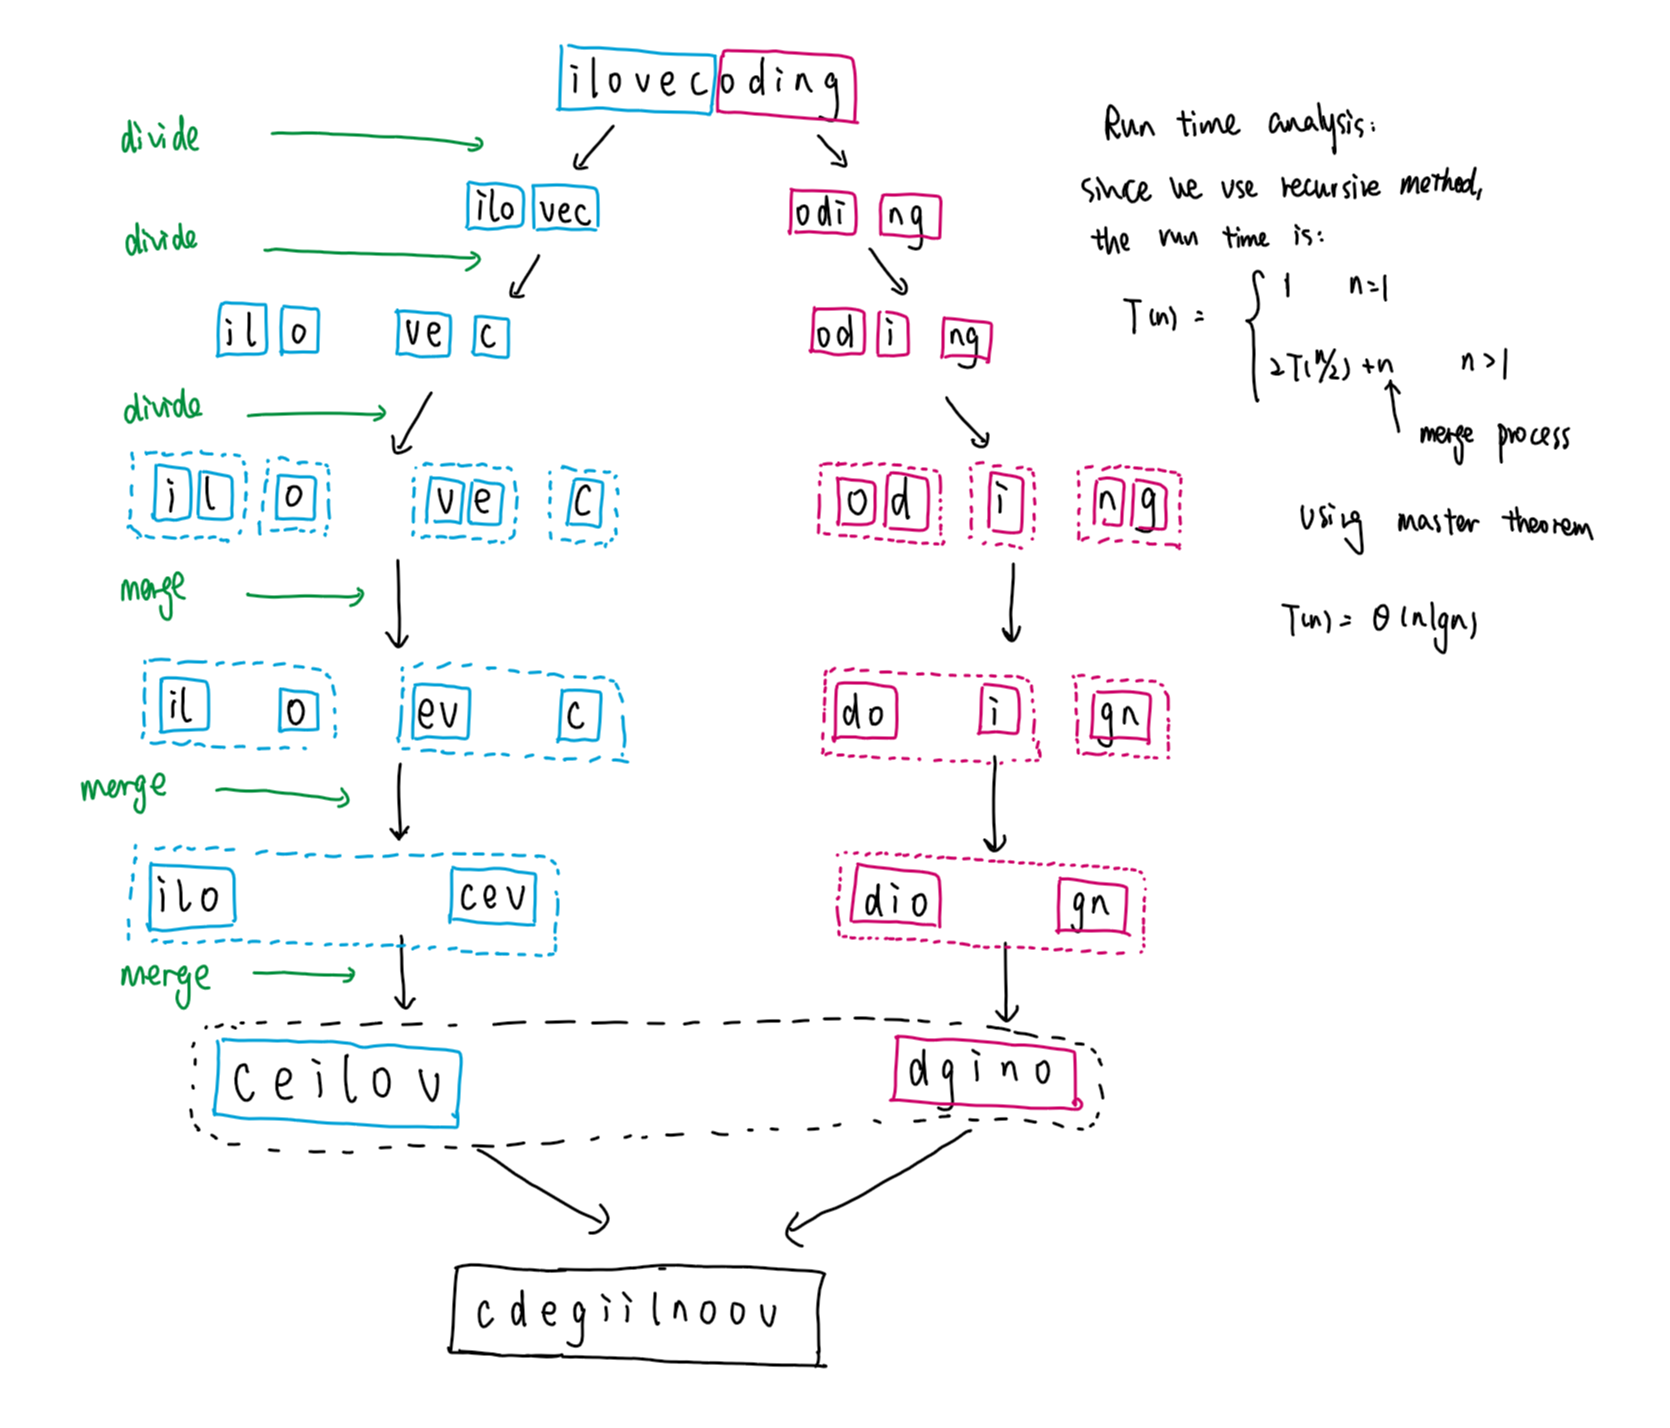 ilovecoding
divide
ilo vec odi ng
divide
il o ve c od i ng
divide
i l o v e c o d i n g
merge
il o ev c do i gn
merge
ilo cev dio gn
merge
ceilov dgino
cdegiilnoov
Run time analysis:
since we use recursive method,
the run time is:
T(n) = { 1 n=1
2T(n/2) + n n>1
merge process
using master theorem
T(n) = θ(nlgn)